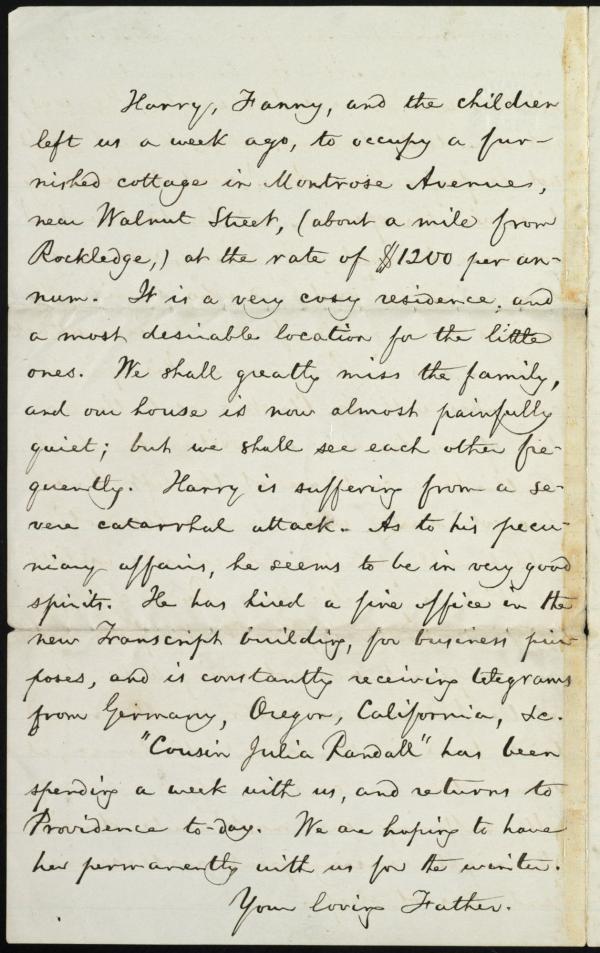 Harry, Fanny, and the children
left us a week ago, to occupy a fur-
nished cottage in Montrose Avenue,
near Walnut Street, (about a mile from
Rockledge,) at the rate of $1200 per an-
num. It is a very cosy residence, and
a most desirable location for the little
ones. We shall greatly miss the family,
and our house is now almost painfully
quiet; but we shall see each other fre-
quently. Harry is suffering from a se-
vere catarrhal attack. As to his pecu-
niary affairs, he seems to be in very good
spirits. He has hired a fine office in the
new Transcript building, for business pur
poses, and is constantly receiving telegrams
from Germany, Oregon, California, &c.
"Cousin Julia Randall" has been
spending a week with us, and returns to
Providence to-day. We are hoping to have
her permanently with us for the winter.
Your loving Father.